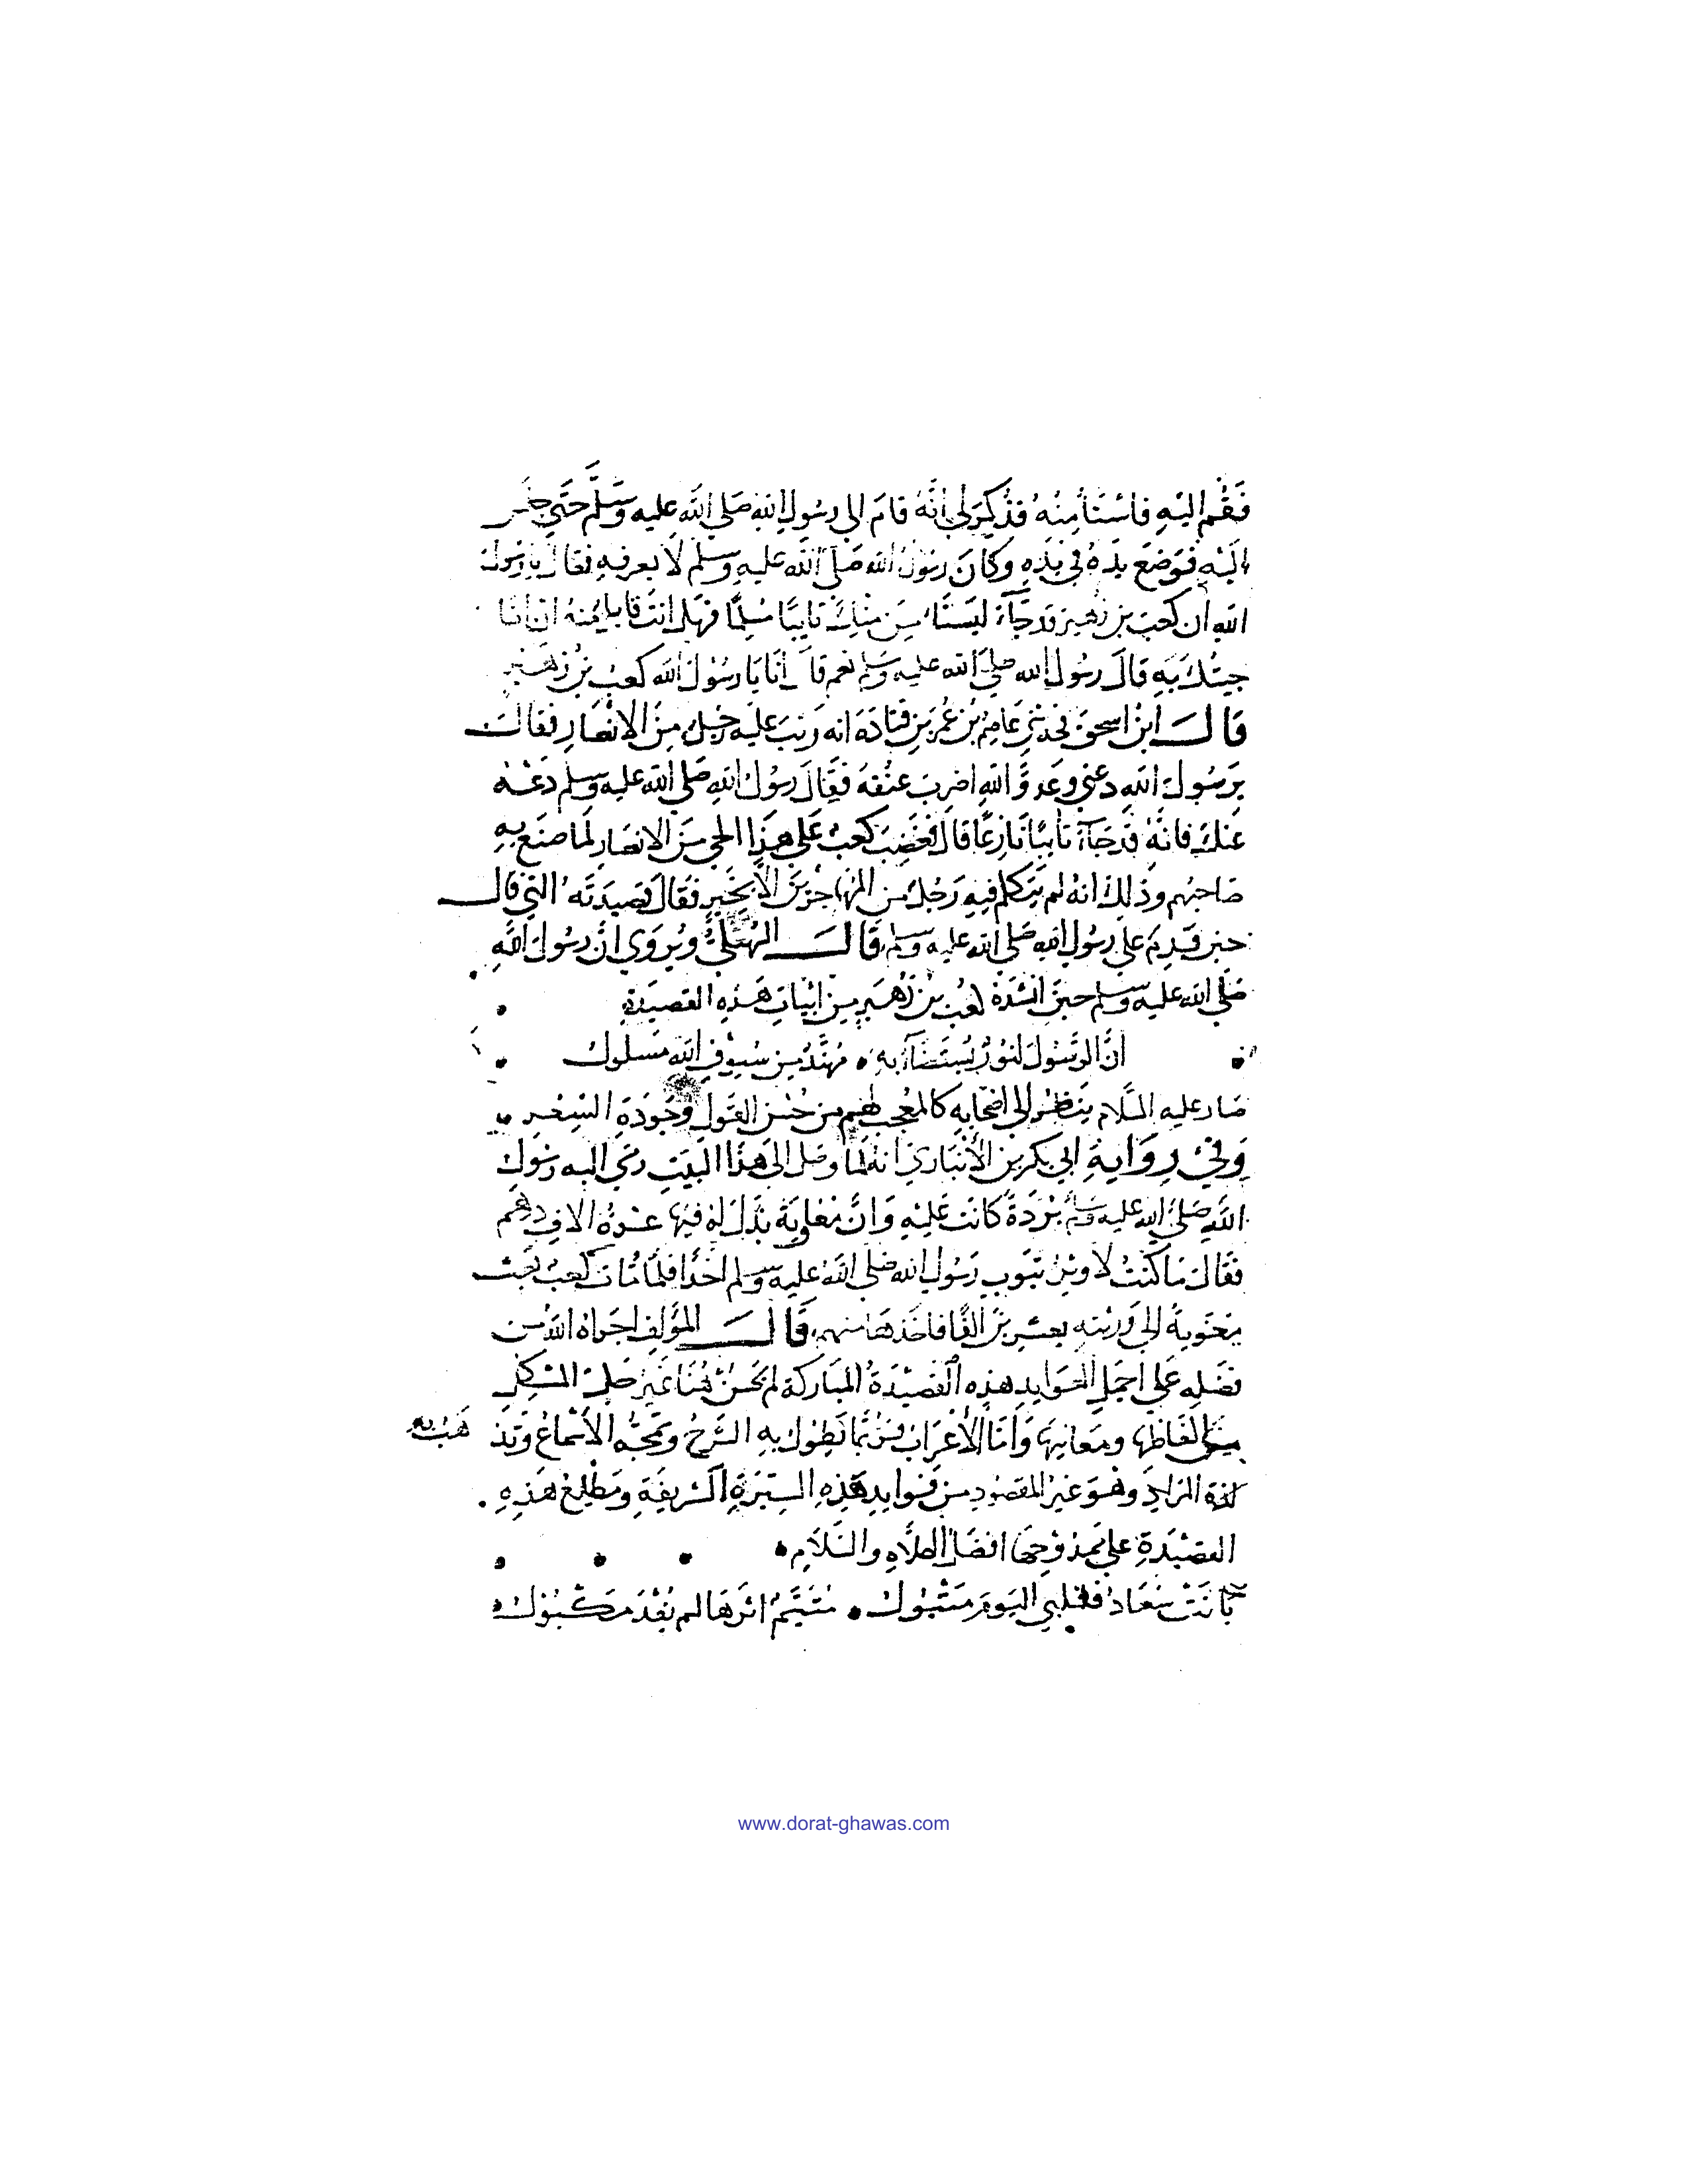 فَقُم اليْهِ فاسْتَأمِنْهُ فذُكِرَ لى انَّهُ قامَ الى رسُولِ اللهِ صَلى الله عليه وسَلَّم حَتَّى جلَس
اليْهِ فوَضعَ يدَهُ فى يدِهِ وكانَ رسُولُ الله صَلى الله عليهِ وسلم لا يعرفهِ فقال يا رسُولَ
اللهِ ان كعبَ بن زهير قد جآءَ ليَسْتَأمِنَ منكَ تايبًا مسْلِمًا فهَل انتَ قابلٌ منهُ ان انا
جيتُكَ بهِ قالَ رسُول الله صلى الله عليه وسَلم نعم قالَ انَا يَا رسُولَ الله كعبُ بنُ زهَير
قَالَ ابنُ اسحقَ فحدثنى عَاصِمُ بنُ عُمَرَ بنِ قتادَةَ انه وثبَ عليْهِ رَجلٌ مِنَ الانْصَارِ فقالَ
يرَسُولَ اللهِ دعنى وعَدوَّ اللهِ اضرِبْ عنُقهُ فقَالَ رسُولُ اللهِ صَلى الله عليه وسلم دَعْهُ
عنكَ فانَّهُ قدْ جَآءَ تايبًا نَازِعًا قالَ فغَضِبَ كعبٌ عَلى هذَا الحى مِنَ الانصَارِ لمَا صنَع بهِ
صَاحبُهم وذلكَ انهُ لم يتَكلم فيهِ رَجُلٌ من المهَاجرينَ الا بخَيرٍ فقَالَ قصيدَتَه التى قال
حينَ قدِمَ على رسُولِ اللهِ صَلى الله عليه وسلم قَالَ السُّهَيلىُّ ويُروَى انَّ رسُولَ اللهِ
صَلى الله عليه وسلم حينَ انشدَهُ كعبُ بنُ زُهَيرٍ مِن ابْيَاتِ هَذِهِ القصِيدَةِ
انَّ الرسُولَ لنُورٌ يُستَضَآءُ بهِ • مهَنَّدٌ مِن سيُوفِ اللهِ مَسلولُ
صَارَ عليه السَّلام ينظرُ الى اصْحَابِهِ كالمعُجِبِ لهم مِن حُسْنِ القَولِ وجُودَةِ الشِعْر
وَفى رِوَايةِ ابى بكر بنِ الأنْبَارِى انه لمَّا وصَل الى هذَا البَيتِ رمَى اليه رسُولُ
اللهِ صَلى الله عليه وسَلم بُرْدَةً كانَت عَليْهِ وَانَّ معَاويَةَ بَذَلَ لهُ فيها عشرةَ الافِ دِرهَم
فقَالَ مَا كنتُ لاوثِرَ بثَوبِ رَسُولِ الله صلى الله عليه وسَلم احَدًا فلمَّا مَاتَ كعبٌ بعَثَ
معَوية الى وَرثتِه بعشرِينَ الفًا فاخَذهَا منهم قَالَ المؤلِف اجرَاهُ اللهُ مِن
فضْلِهِ عَلى اجمَلِ العَوايدِ هذِه القصِيْدَةُ المبَاركَة لم يَحسُنْ هُنَا غَير حَلِّ المشْكِلِ
مِن الفَاظِهَا ومَعَانِيهَا وَامَّا الأعْرَابُ فرُبَّمَا يَطُولُ بهِ الشَّرحُ وتمجُّه الأسْمَاعُ وتذ هَبُ به
لذة المرَادِ وهُوَ غيرُ المقصُودِ مِن فوايدِ هَذِهِ السِيْرَةِ الشريفَةِ ومَطلِعُ هَذِهِ
القصِيْدَةِ على ممْدُوْحِهَا افضَل الصَّلاه والسَّلَامِ
بَانَتْ سُعَادُ فقلبى اليَومَ مَتْبُولُ • مُتَيَّمٌ اثرَهَا لم يُفْدَ مَكْبُوْلُ
www.dorat-ghawas.com